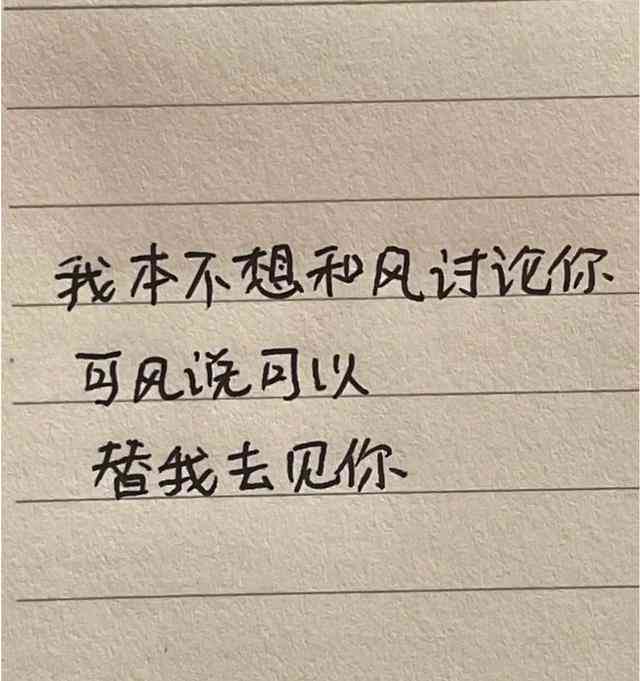 我本不想和风讨论你
可风说可以
替我去见你